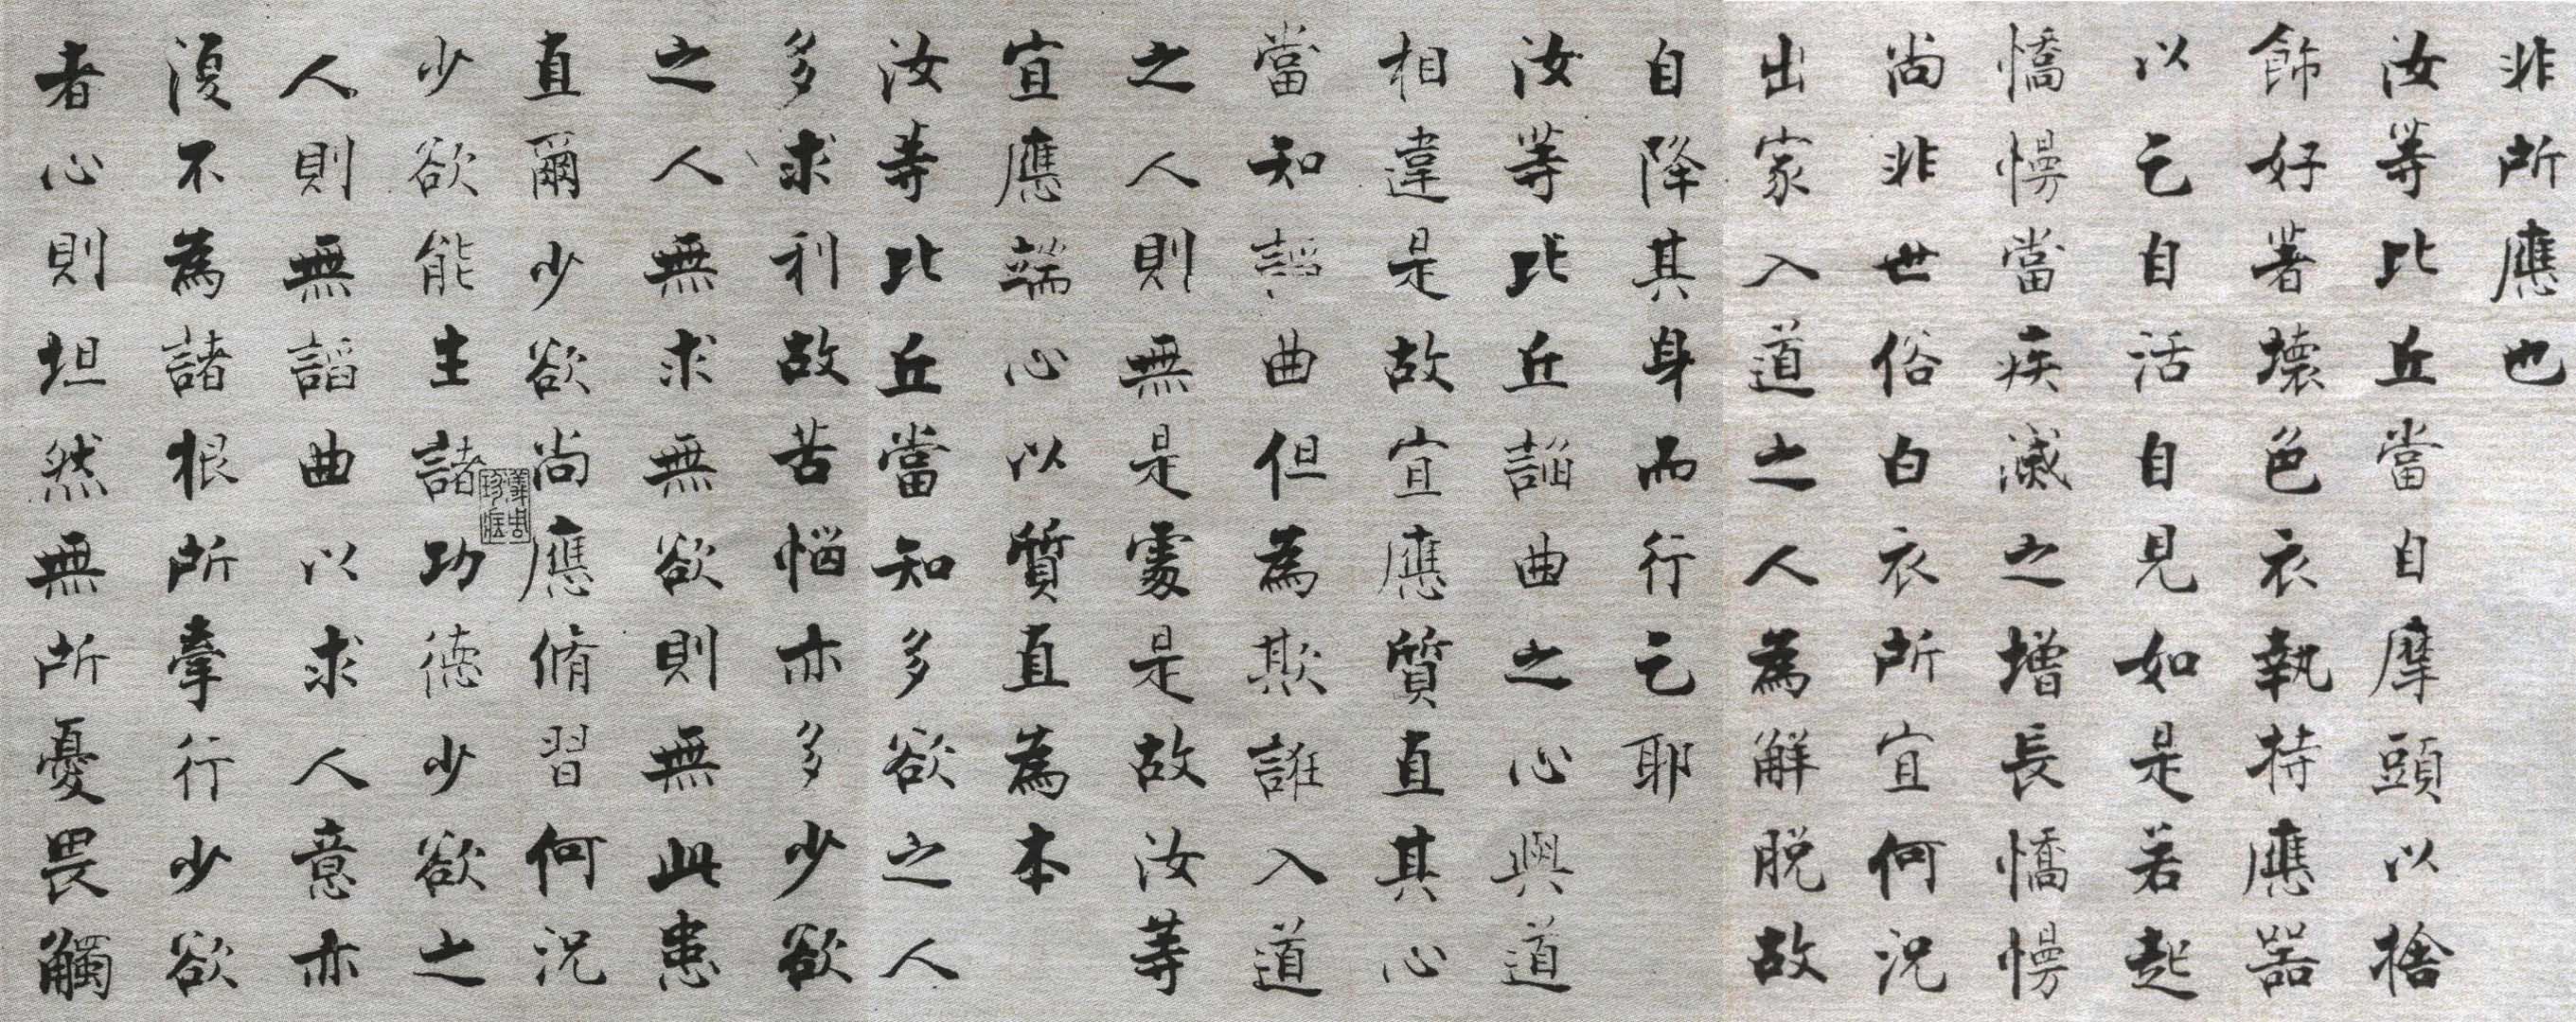 非所應也
汝等比丘當自摩頭以捨
飾好著壞色衣執持應器
以乞自活自見如是若起
憍慢當疾滅之增長憍慢
尚非世俗白衣所宜何況
出家入道之人為解脫故
自降其身而行乞耶
汝等比丘諂曲之心與道
相違是故宜應質直其心
當知諂曲但為欺誑入道
之人則無是處是故汝等
宜應端心以質直為本
汝等比丘當知多欲之人
多求利故苦惱亦多少欲
之人無求無欲則無此患
直爾少欲尚應脩習何況
少欲能生諸功德少欲之
人則無諂曲以求人意亦
復不為諸根所牽行少欲
者心則坦然無所憂畏觸